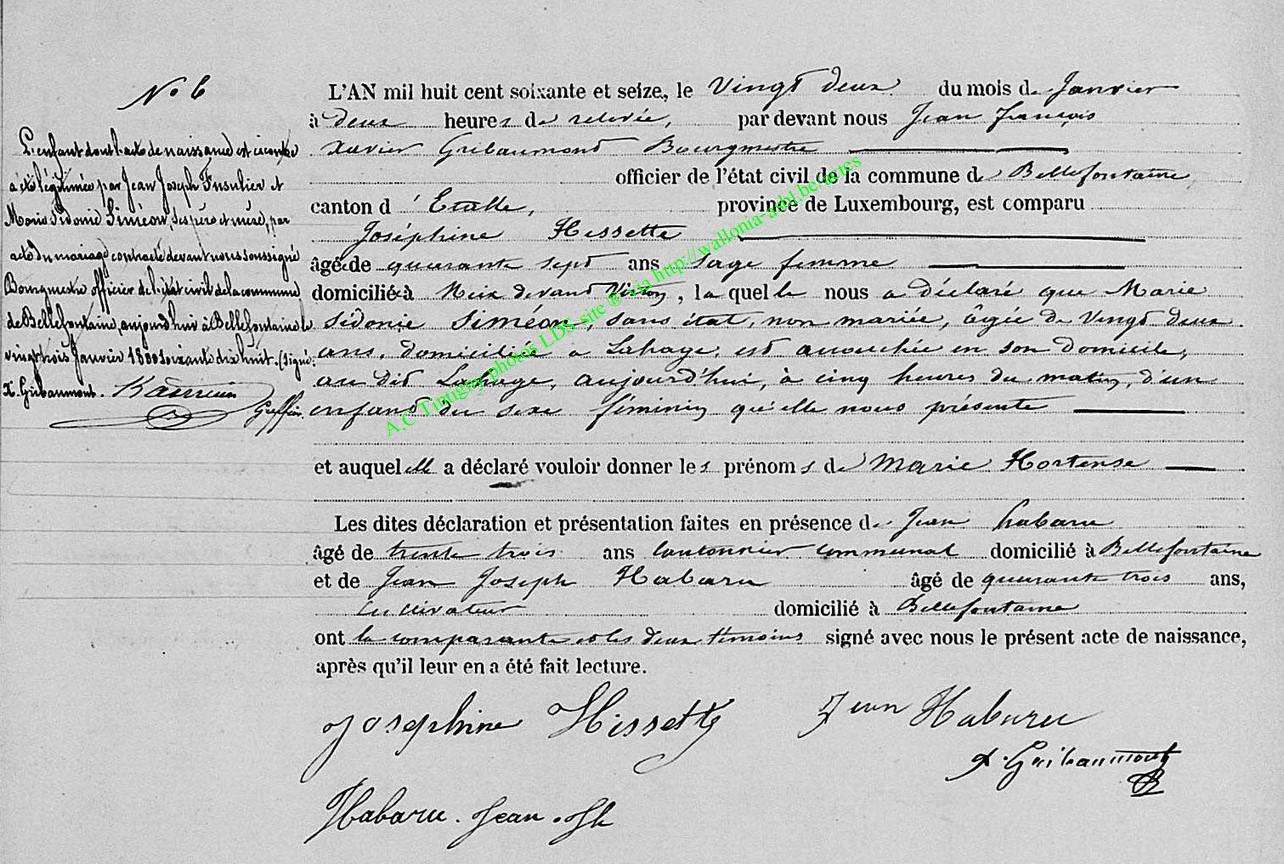 No 6
L'enfant dont l'acte de naissance est ci contre
a été légitimée par Jean Joseph Fusulier et
Marie Sidonie Siméon, ses père et mère, par
acte du mariage contracté devant nous soussigné
Bourgmestre officier de l'état civil de la commune
de Bellefontaine, aujourd'hui à Bellefontaine le
vingt trois Janvier 1800 soixante dix huit. (Signé:
X. Gribaumont.
Greffier
L'AN mil huit cent soixante et seize, le Vingt deux du mois de Janvier
à deux heures de relevée, par devant nous Jean François
Xavier Gribaumont Bourgmestre
officier de l'état civil de la commune de Bellefontaine,
canton d'Etalle, province de Luxembourg, est comparu
Joséphine Hissette
âgée de quarante sept ans sage femme
domiciliée à Meix devant Virton, la quelle nous a déclaré que Marie
Sidonie Siméon, sans état, non mariée, âgée de Vingt deux
ans, domiciliée à Lahage, est accouchée en son domicile,
au dit Lahage, aujourd'hui, à cinq heures du matin, d'un
enfant du sexe féminin qu'elle nous présente
et auquel elle a déclaré vouloir donner les prénoms de Marie Hortense
Les dites déclaration et présentation faites en présence de Jean Habaru
âgé de trente trois ans Cantonnier communal domicilié à Bellefontaine
et de Jean Joseph Habaru âgé de quarante trois ans,
Cultivateur domicilié à Bellefontaine
ont la comparante et les deux témoins signé avec nous le présent acte de naissance,
après qu'il leur en a été fait lecture.
Josephine Hissette Jean Habaru
X. Gribaumont
Habaru. Jean. Jh
A.C Tintigny photos LDS site © via http://wallonia-asbl.be/actes